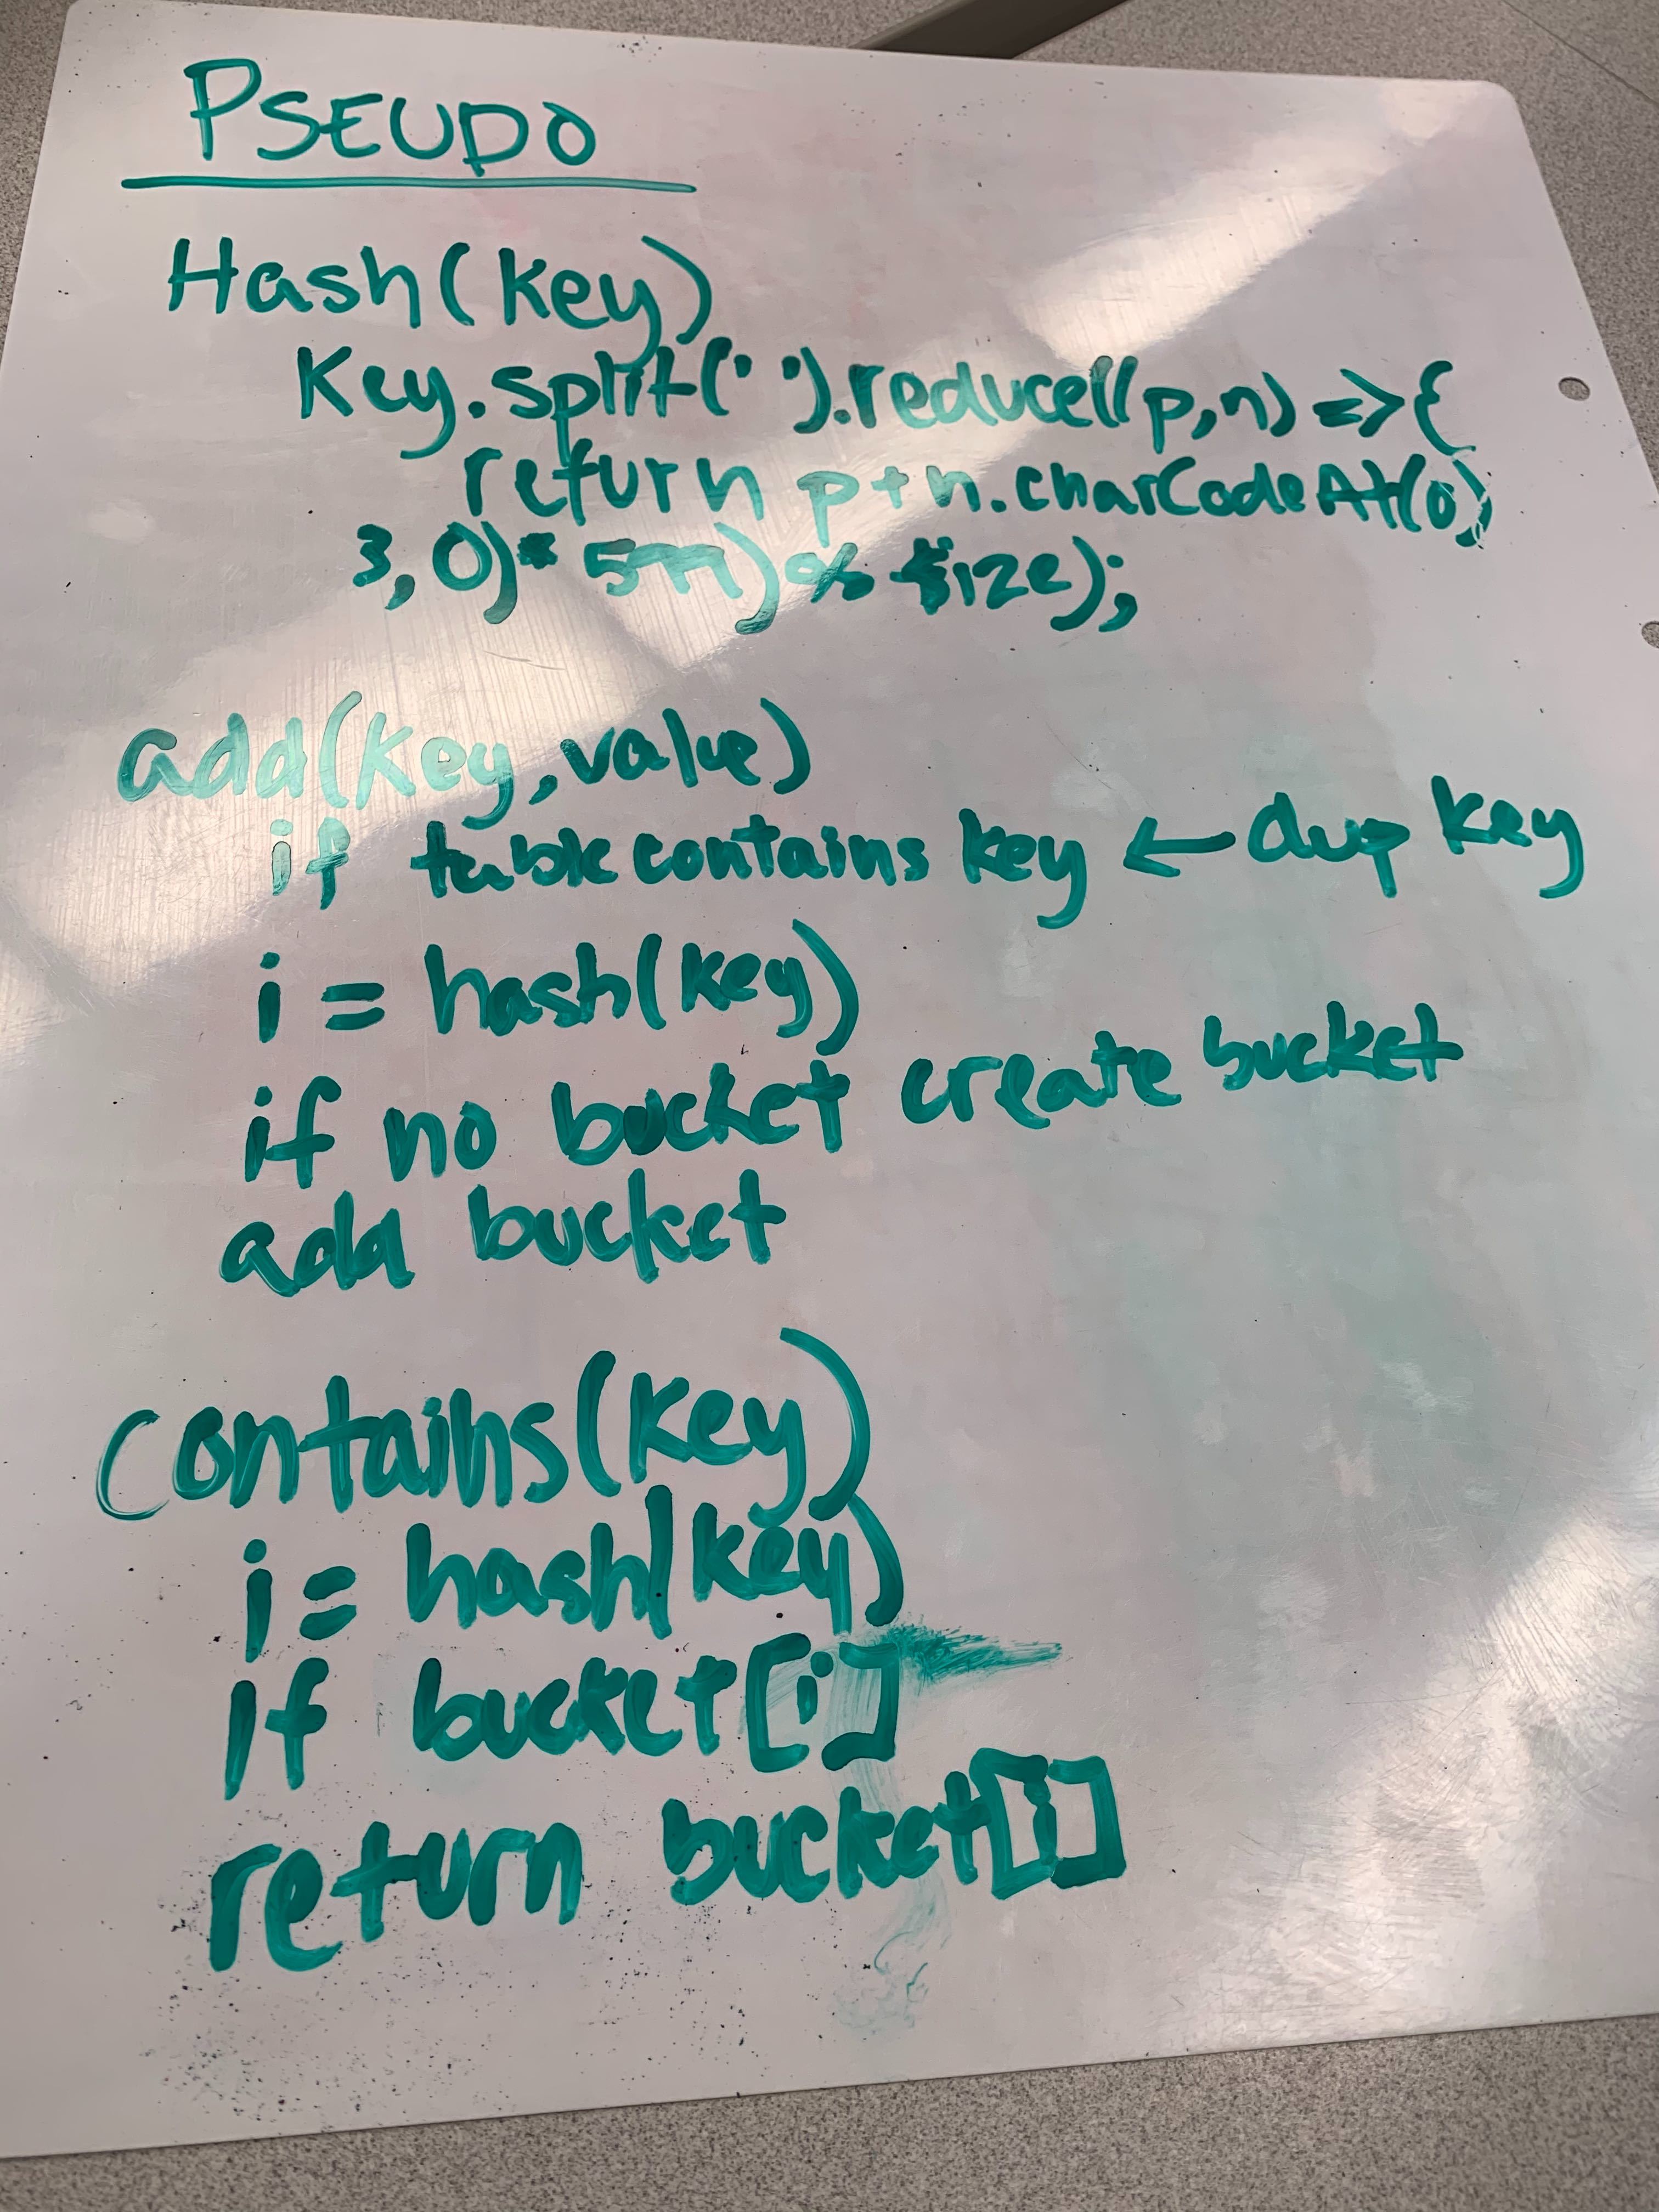 PSEUDO
Hash(key)
Key.split('').reduce((p,n) => {
return p+n.charCodeAt(0);
}, 0)* 599) % size);
add(key, value)
if table contains key ← dup key
i = hash(key)
if no bucket create bucket
add bucket
Contains(key)
i = hash(key)
if bucket[i]
return bucket[i]